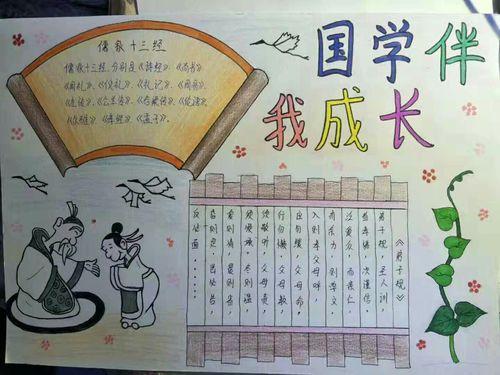 国学伴
我成长
儒家十三经
儒家十三经,分别是《诗经》、《尚书》
《周礼》、《仪礼》、《礼记》、《周易》、
《左传》、《公羊传》、《谷梁传》、《论语》、
《尔雅》、《孝经》、《孟子》。
《弟子规》
弟子规,圣人训,
首孝悌,次谨信,
泛爱众,而亲仁
有余力,则学文
入则孝父母呼,
应勿缓,父母命,
行勿懒,父母教,
须敬听,父母责,
须顺承,冬则温
夏则清,晨则省,
昏则定,出必告,
反必面……